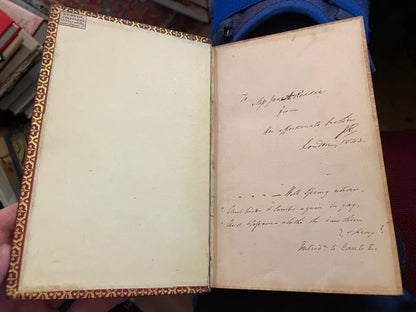 To Miss Janet
from
her affectionate brother
London, 1843.
- - - - Will Spring return,
" And birds & lambs again be gay,
" And blossoms clothe the hawthorn
spray?
Introdn. to Canto I.